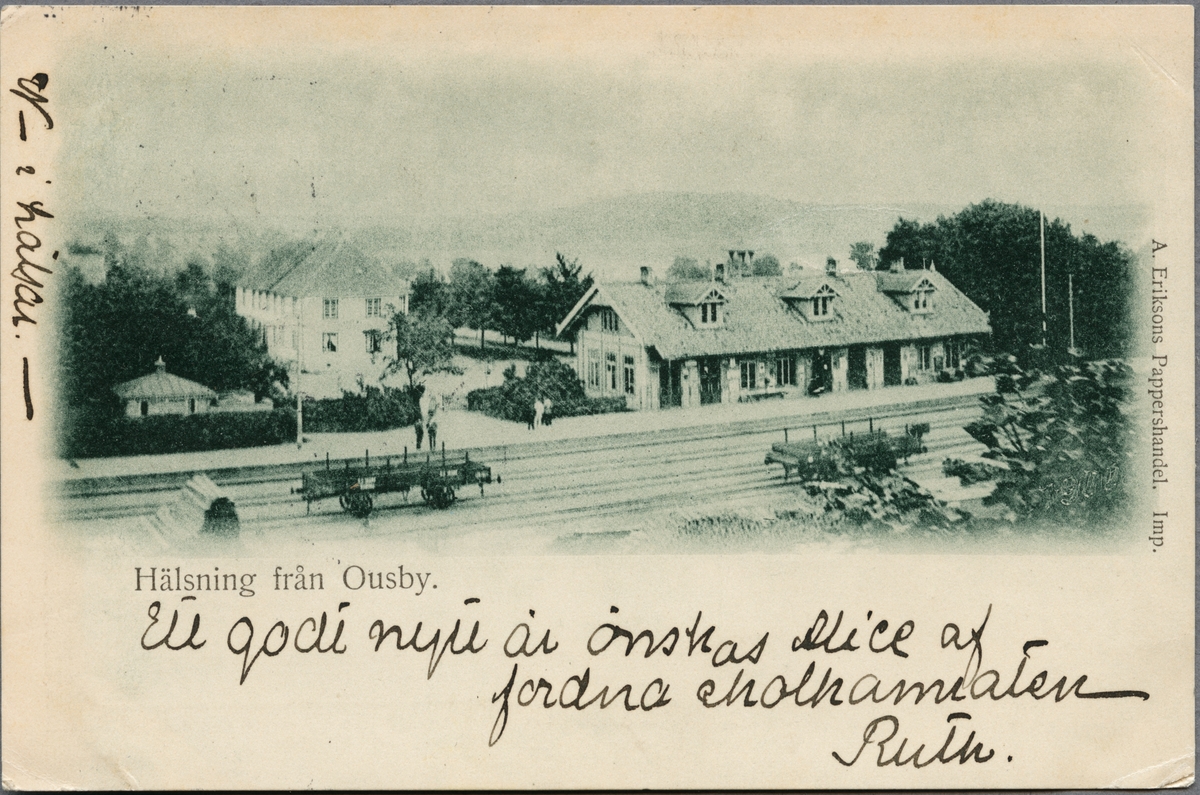 Hälsning från Ousby.
Ett godt nytt år önskas Alice af
fordna skolkamraten
Ruth.
A. Eriksons Pappershandel. Imp.
i hälsar. —